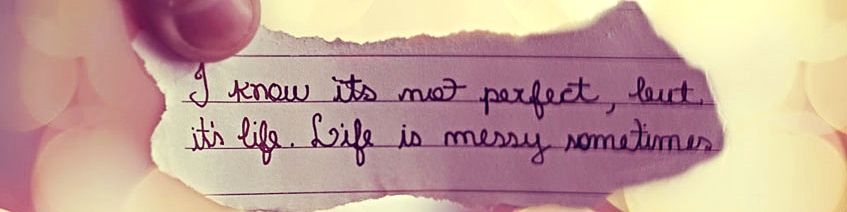 I know its not perfect, but.
it's life. Life is messy sometimes